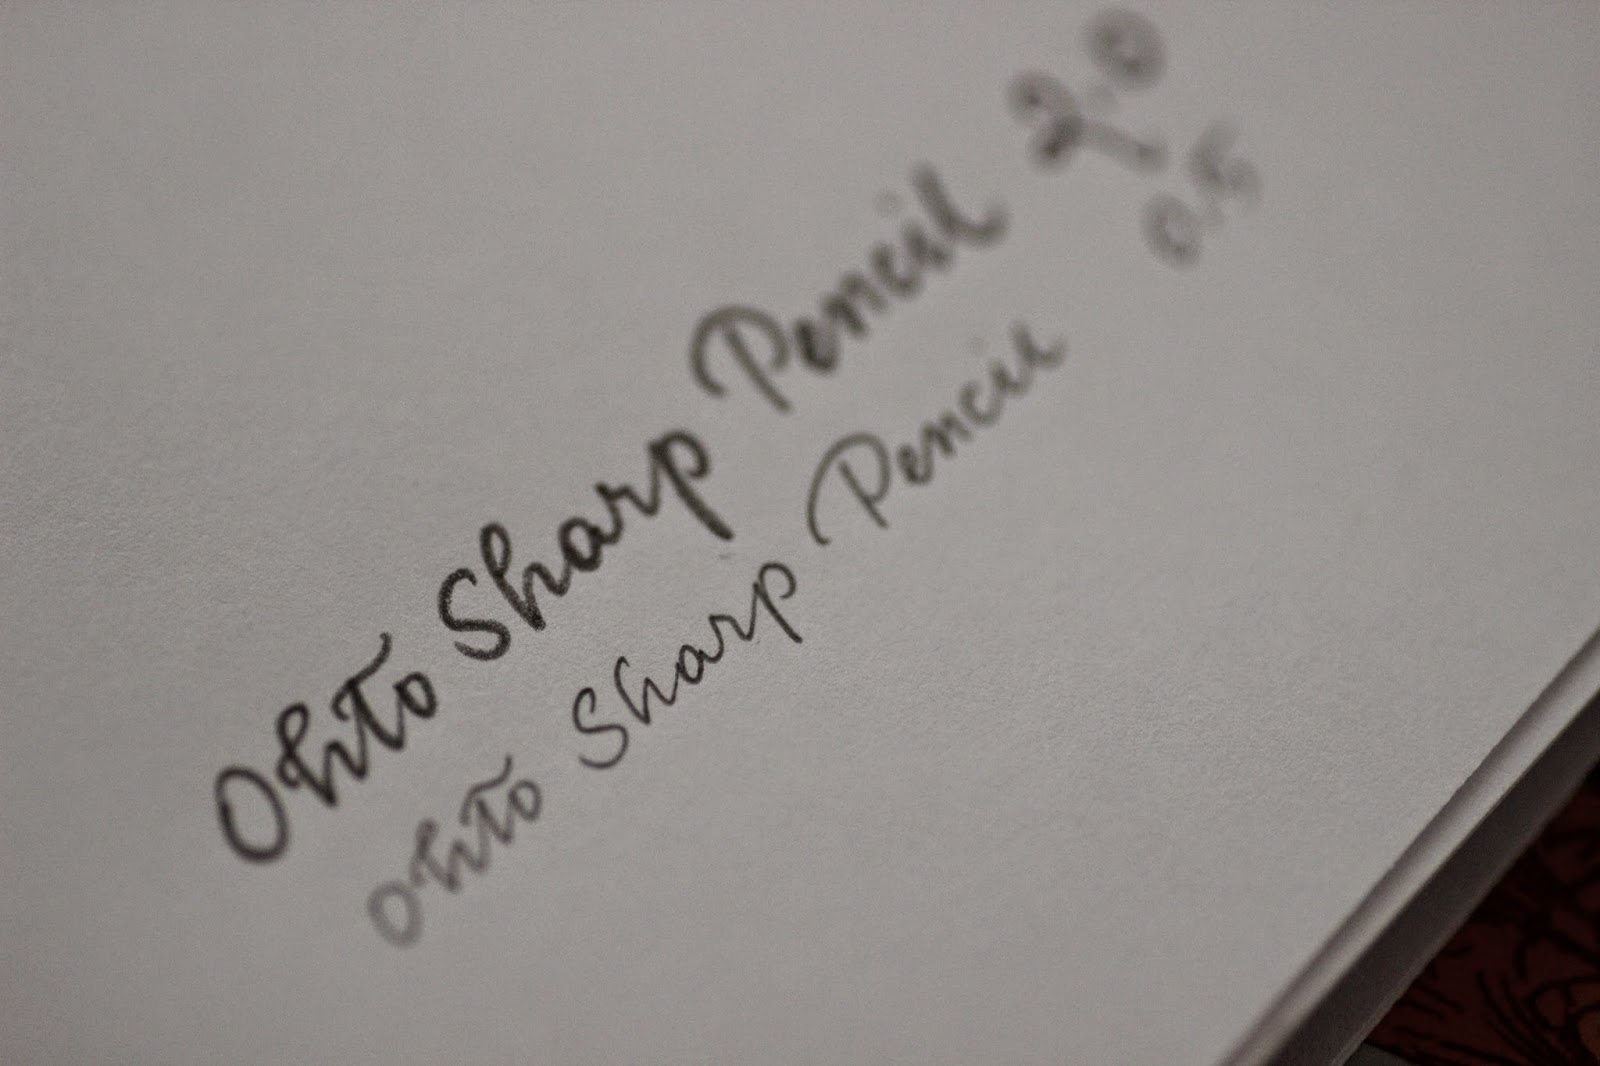 Ohto Sharp Pencil 2.0
Ohto Sharp Pencil 0.5